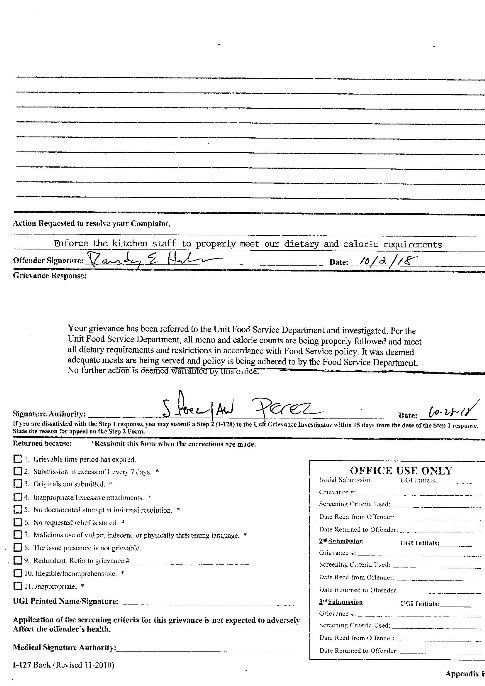 Action Requested to resolve your Complaint.
Enforce the kitchen staff to properly meet our dietary and caloric requirements
Offender Signature: Randy E Date: 10/2/18
Grievance Response:
Your grievance has been referred to the Unit Food Service Department and investigated. Per the
Unit Food Service Department, all menu and calorie counts are being properly followed and meet
all dietary requirements and restrictions in accordance with Food Service policy. It was deemed
adequate meals are being served and policy is being adhered to by the Food Service Department.
No further action is deemed warranted by this office.
Signature Authority: Perez Date:
If you are dissatisfied with the Step 1 response, you may submit a Step 2 (I-128) to the Unit Grievance Investigator within 15 days from the date of the Step 1 response.
State the reason for appeal on the Step 2 Form.
Returned because: *Resubmit this form when the corrections are made.
1. Grievable time period has expired.
2. Submission in excess of 1 every 7 days. *
3. Originals not submitted. *
4. Inappropriate/Excessive attachments. *
5. No documented attempt at informal resolution. *
6. No requested relief is stated. *
7. Malicious use of vulgar, indecent, or physically threatening language. *
8. The issue presented is not grievable.
9. Redundant, Refer to grievance #
10. Illegible/Incomprehensible. *
11. Inappropriate. *
UGI Printed Name/Signature:
Application of the screening criteria for this grievance is not expected to adversely
Affect the offender's health.
Medical Signature Authority:
I-127 Back (Revised 11-2010)
OFFICE USE ONLY
Initial Submission UGI Initials:
Grievance #:
Screening Criteria Used:
Date Recd from Offender:
Date Returned to Offender:
2nd Submission UGI Initials:
Grievance #:
Screening Criteria Used:
Date Recd from Offender:
Date Returned to Offender:
3rd Submission UGI Initials:
Grievance #:
Screening Criteria Used:
Date Recd from Offender:
Date Returned to Offender:
Appendix F